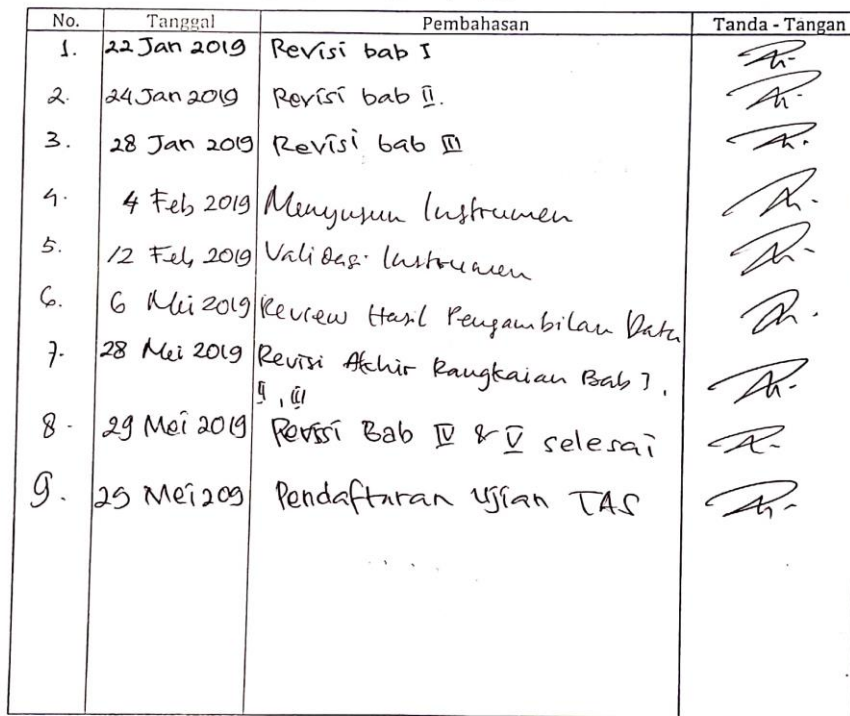 No. Tanggal Pembahasan Tanda - Tangan
1. 22 Jan 2019 Revisi bab I
2. 24 Jan 2019 Revisi bab II.
3. 28 Jan 2019 Revisi bab III
4. 4 Feb 2019 Menyusun Instrumen
5. 12 Feb 2019 Validasi Instrumen
6. 6 Mei 2019 Review Hasil Pengambilan Data
7. 28 Mei 2019 Revisi Akhir Rangkaian Bab I,
II, III
8. 29 Mei 2019 Revisi Bab IV & V selesai
9. 29 Mei 209 Pendaftaran Ujian TAS